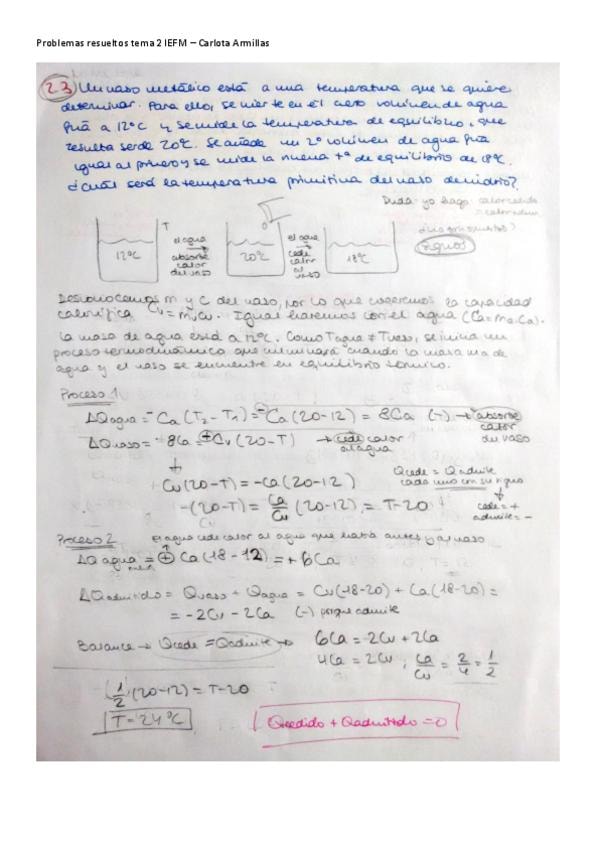 Problemas resueltos tema 2 IEFM – Carlota Armillas
2.3 Un vaso metálico está a una temperatura que se quiere
determinar. Para ello, se vierte en él cierto volúmen de agua
fría a 12ºC y se mide la temperatura de equilibrio, que
resulta ser de 20ºC. Se añade un 2º volúmen de agua fría
igual al primero y se mide la nueva tª de equilibrio de 18ºC.
¿Cuál será la temperatura primitiva del vaso de vidrio?
Duda: yo hago calor cedido
= calor
signos
T
12ºC
el agua
absorbe
calor
del vaso
20ºC
el agua
cede
calor
al
vaso
18ºC
Desconocemos m y c del vaso, por lo que cogeremos la capacidad
calorífica Cv = mv cv. Igual haremos con el agua (Ca = ma·ca).
La masa de agua está a 12ºC. Como Tagua ≠ Tvaso, se inicia un
proceso termodinámico que culminará cuando la masa ma de
agua y el vaso se encuentre en equilibrio térmico.
Proceso 1
ΔQagua = - Ca (T2 - T1) = - Ca (20-12) = 8Ca (-) → absorbe
calor
del vaso
ΔQvaso = + 8Ca = + Cv (20-T) → cede calor
al agua
+ Cv (20-T) = -Ca (20-12)
Qcede = Qadmite
cada uno con su signo
cede = +
admite = -
-(20-T) = Ca/Cv (20-12) = T-20
Proceso 2 El agua cede calor al agua que había antes y al vaso
ΔQagua = + Ca (18-12) = + 6Ca
ΔQadmitido = Qvaso + Qagua = Cv (18-20) + Ca (18-20) =
= -2Cv - 2Ca (-) porque admite
Balance → Qcede = Qadmite → 6Ca = 2Cv + 2Ca
4Ca = 2Cv ; Ca/Cv = 2/4 = 1/2
(1/2)(20-12) = T-20
T = 24ºC
Qcedido + Qadmitido = 0